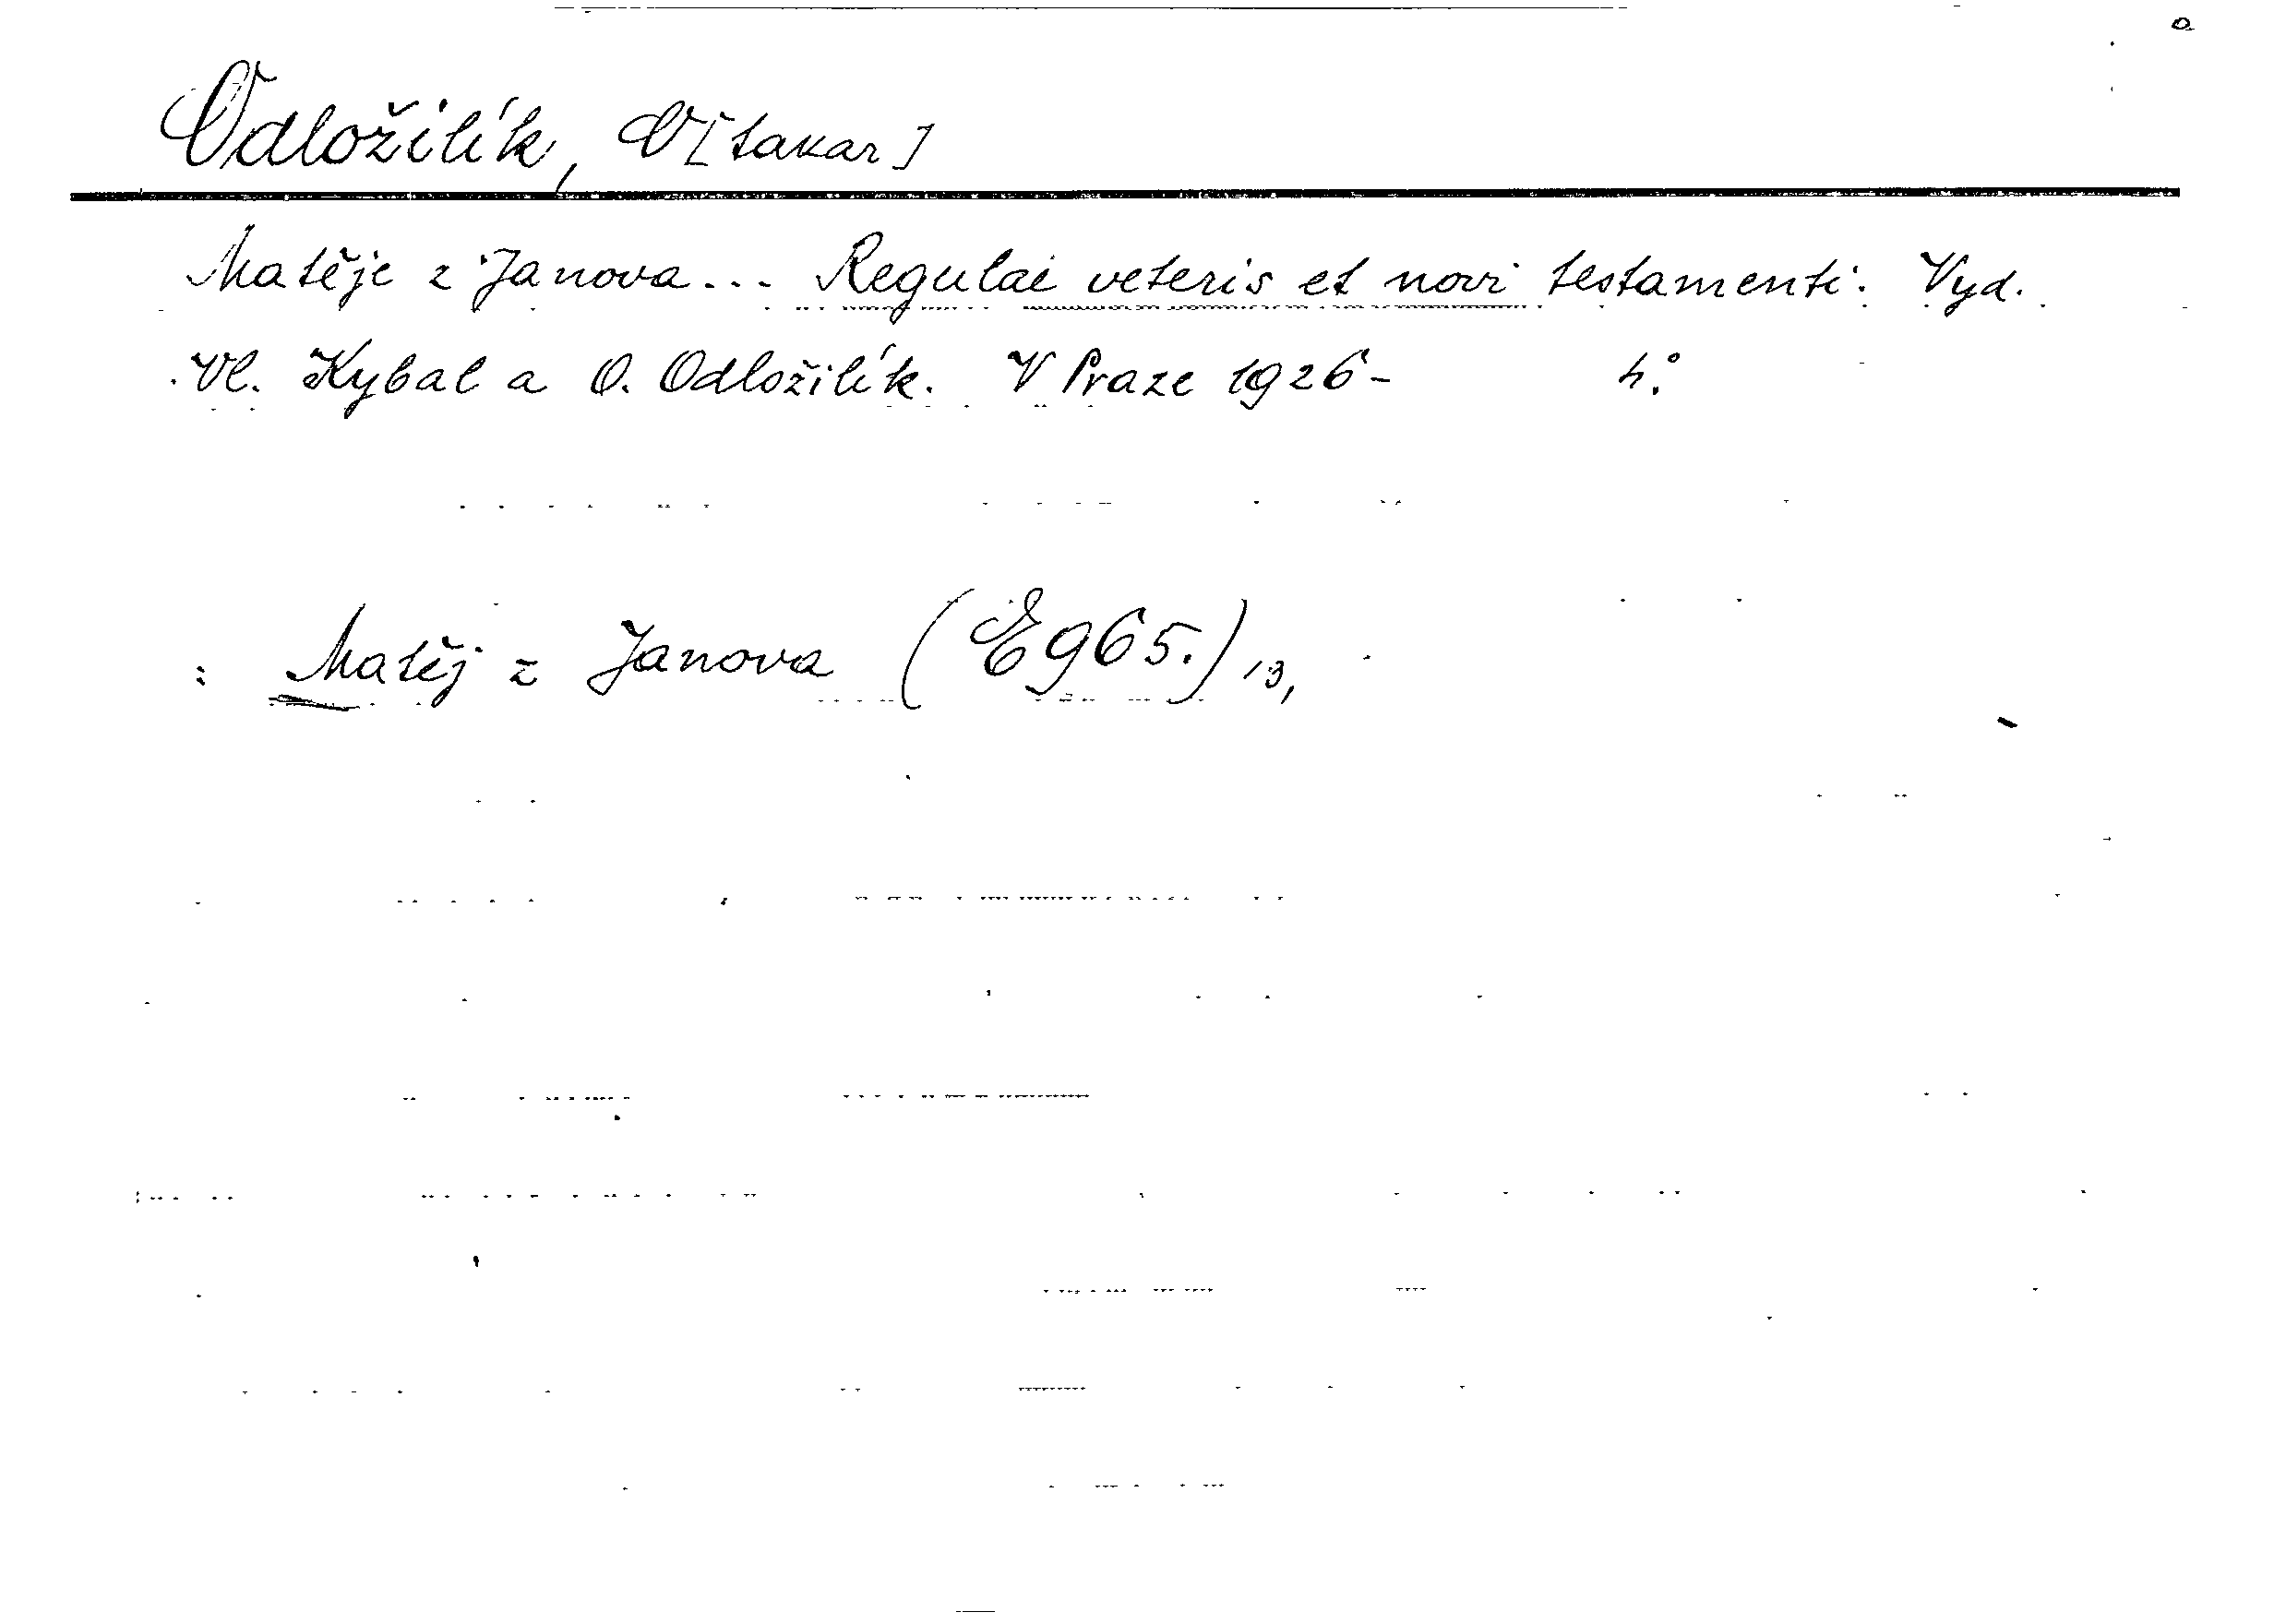 Odložilík, O[takar]
Matěje z Janova... Regulae veteris et novi testamenti. Vyd.
Vl. Kybal a O. Odložilík. V Praze 1926- 4°.
: Matěj z Janova (E965.) 13,